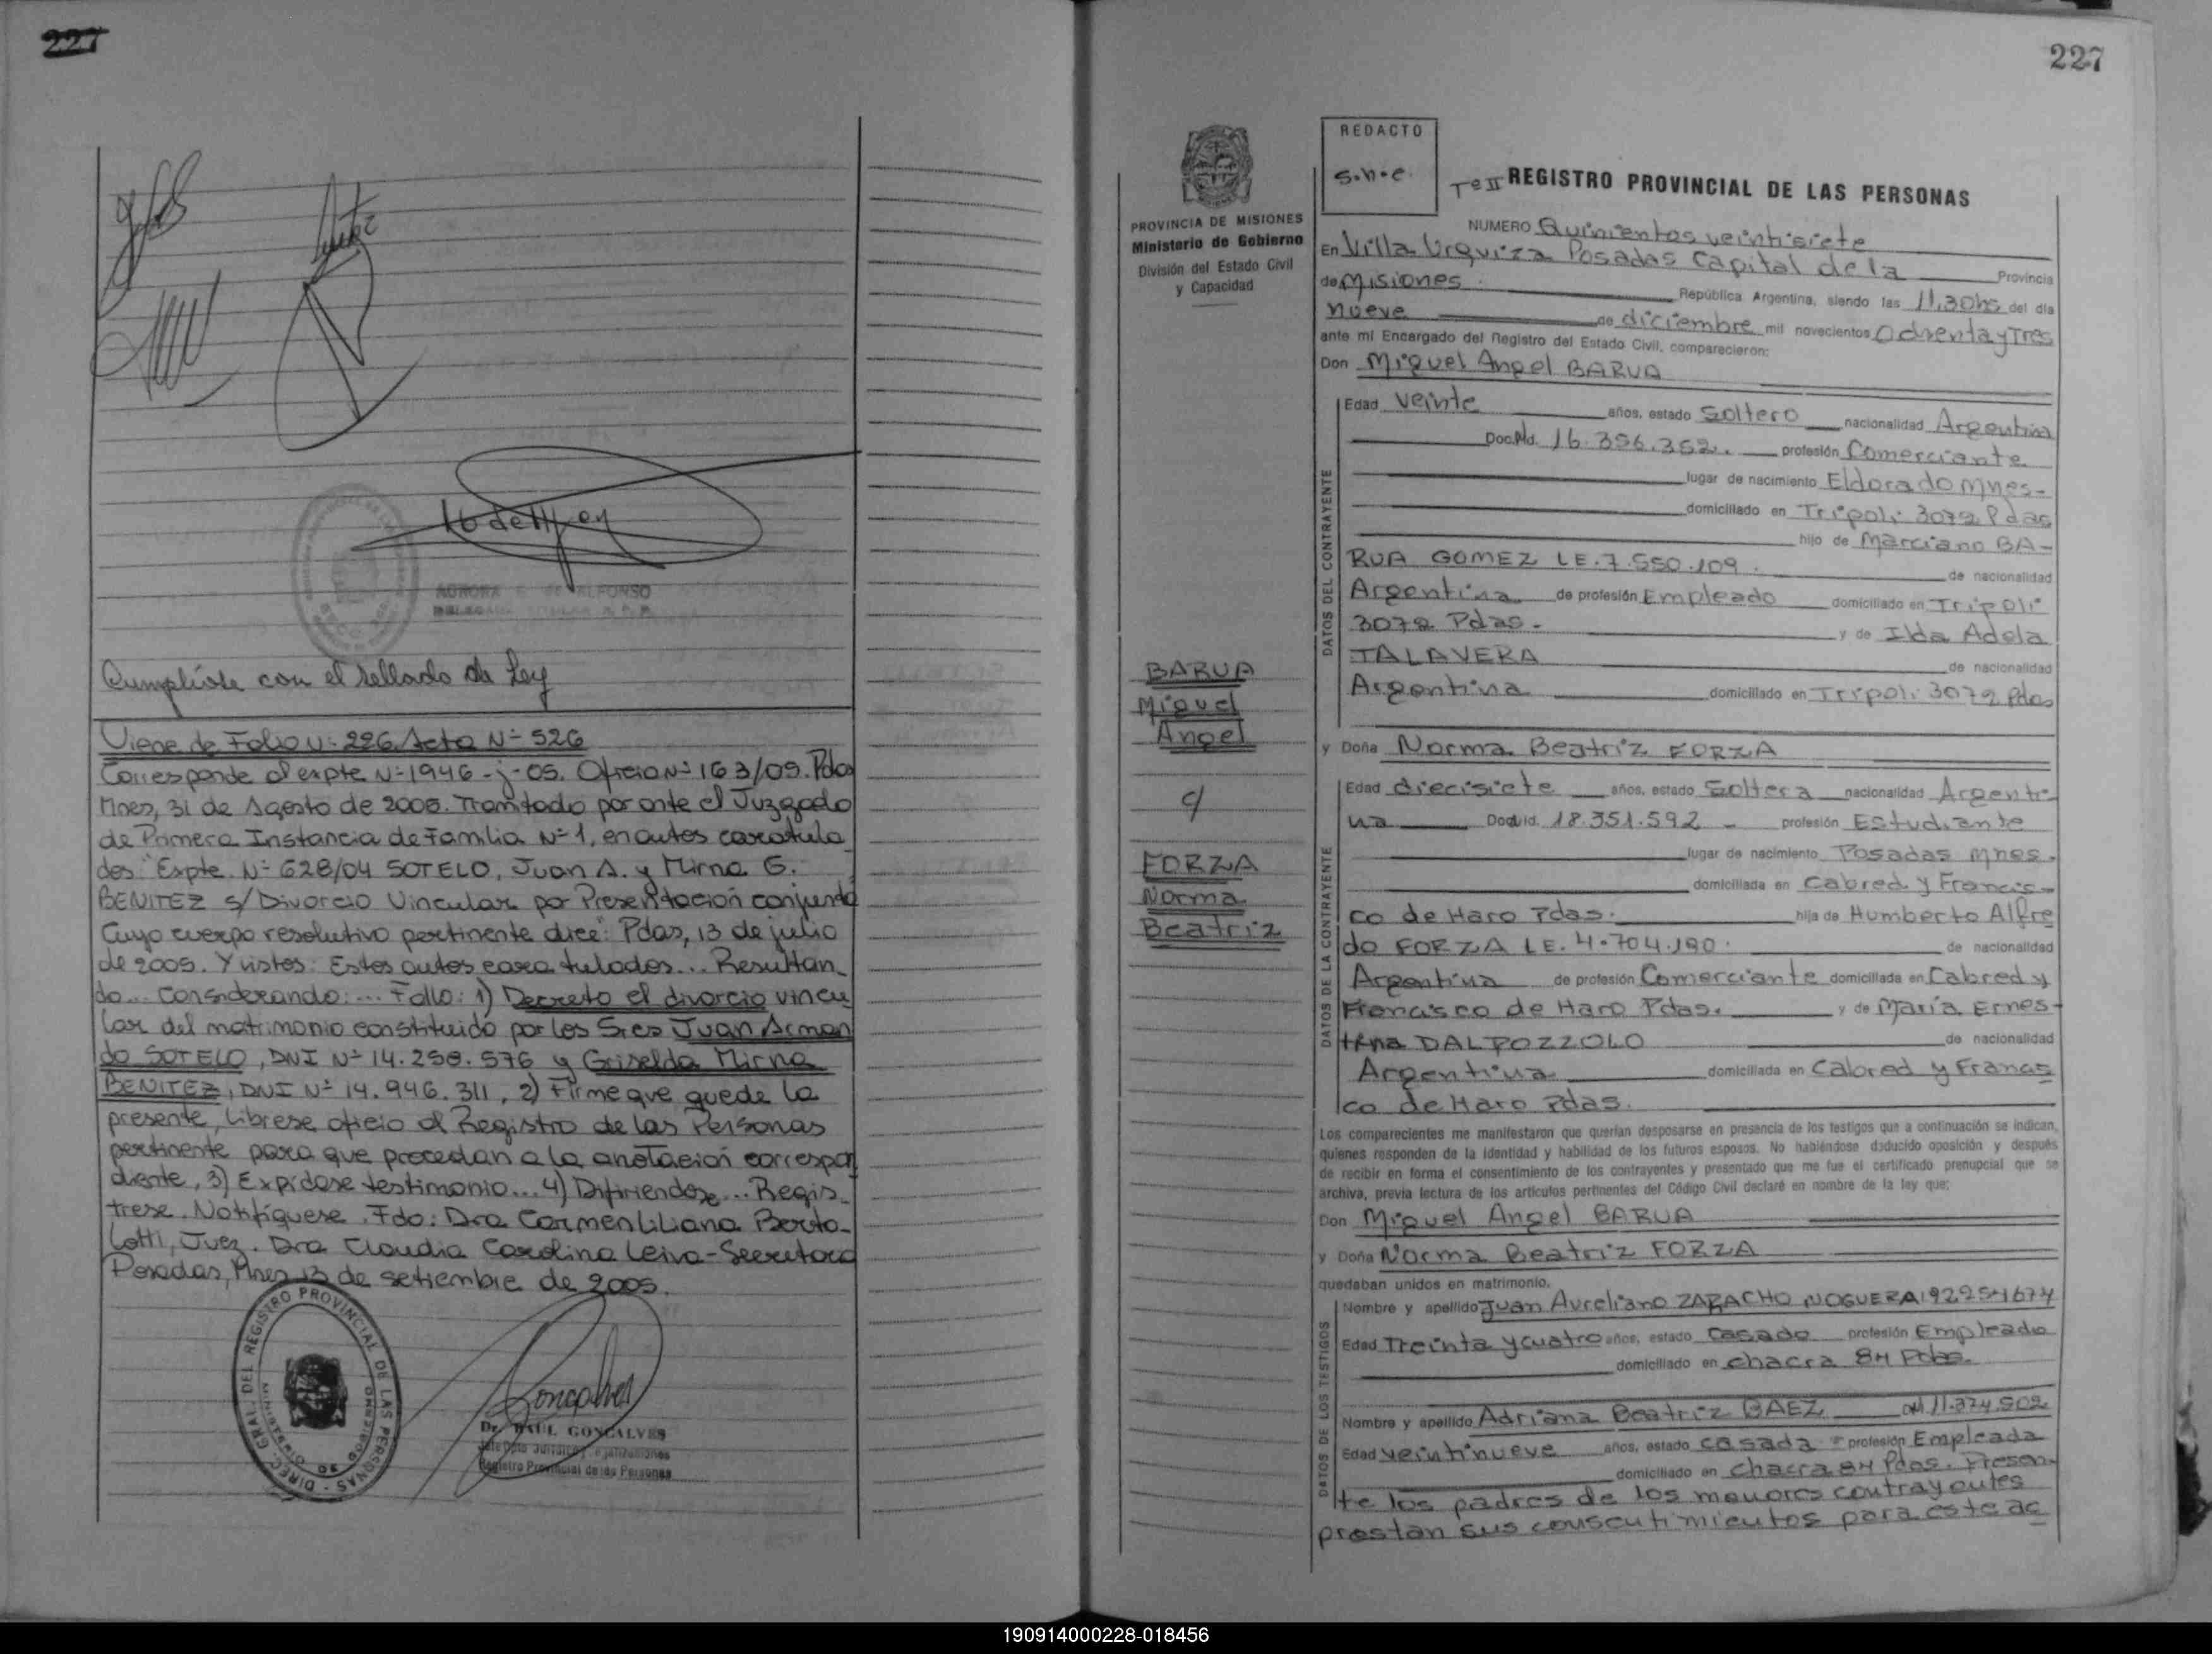 227
Cumplióse con el sellado de Ley
Viene de Folio Nº 226 Acta Nº 526
Corresponde al expte Nº 1946-j-05. Oficio Nº 163/05. Pdas
Mnes, 31 de Agosto de 2005. Tramitado por ante el Juzgado
de Primera Instancia de Familia Nº 1, en autos caratula
dos: "Expte. Nº 628/04 SOTELO, Juan A. y Mirna G.
BENITEZ s/ Divorcio Vincular por Presentación conjunta
Cuyo cuerpo resolutivo pertinente dice: Pdas, 13 de julio
de 2005. Y vistos: Estos autos caratulados... Resultan
do... Considerando:... Fallo: 1) Decreto el divorcio vincu
lar del matrimonio constituido por los Sres Juan Arman
do SOTELO, DNI Nº 14.258.576 y Griselda Mirna
BENITEZ, DNI Nº 14.946.311, 2) Firme que quede la
presente, Librese oficio al Registro de las Personas
pertinente para que procedan a la anotación correspon
diente, 3) Expídase testimonio... 4) Difiriendose... Regis-
trese. Notifíquese. Fdo: Dra Carmen Liliana Berto-
lotti, Juez. Dra Claudia Carolina Leiva-Secretaria
Posadas, Mnes 13 de setiembre de 2005.
DIREC. GRAL. DEL REGISTRO PROVINCIAL DE LAS PERSONAS
MINISTERIO DE GOBIERNO
Dr. RAUL GONCALVES
Registro Provincial de las Personas
227
PROVINCIA DE MISIONES
Ministerio de Gobierno
División del Estado Civil
y Capacidad
BARUA
Miguel
Angel
c/
FORZA
Norma
Beatriz
REDACTO
s.n.e.
Tº II REGISTRO PROVINCIAL DE LAS PERSONAS
NUMERO Quinientos veintisiete
En Villa Urquiza Posadas Capital de la Provincia
de Misiones República Argentina, siendo las 11,30hs del día
nueve de diciembre mil novecientos Ochenta y Tres
ante mí Encargado del Registro del Estado Civil, comparecieron:
Don Miguel Angel BARUA
DATOS DEL CONTRAYENTE
Edad veinte años, estado Soltero nacionalidad Argentina
Doc.Nd. 16.356.352. profesión Comerciante
lugar de nacimiento Eldorado Mnes-
domiciliado en Tripoli 3072 Pdas
hijo de Marciano BA-
RUA GOMEZ LE.7.550.109. de nacionalidad
Argentina de profesión Empleado domiciliado en Tripoli
3072 Pdas- y de Ilda Adela
TALAVERA de nacionalidad
Argentina domiciliado en Tripoli 3072 Pdas
y Doña Norma Beatriz FORZA
DATOS DE LA CONTRAYENTE
Edad diecisiete años, estado Soltera nacionalidad Argenti-
na Doc. Id. 18.351.592 - profesión Estudiante
lugar de nacimiento Posadas Mnes.
domiciliada en Cabred y Francis-
co de Haro Pdas. hija de Humberto Alfre
do FORZA LE. 4.704.190. de nacionalidad
Argentina de profesión Comerciante domiciliada en Cabred y
Francisco de Haro Pdas. y de María Ernes-
tina DALPOZZOLO de nacionalidad
Argentina domiciliada en Cabred y Francis
co de Haro Pdas.
Los comparecientes me manifestaron que querían desposarse en presencia de los testigos que a continuación se indican,
quienes responden de la identidad y habilidad de los futuros esposos. No habiéndose deducido oposición y después
de recibir en forma el consentimiento de los contrayentes y presentado que me fue el certificado prenupcial que se
archiva, previa lectura de los artículos pertinentes del Código Civil declaré en nombre de la ley que:
Don Miguel Angel BARUA
y Doña Norma Beatriz FORZA
quedaban unidos en matrimonio.
DATOS DE LOS TESTIGOS
Nombre y apellido Juan Aureliano ZARACHO NOGUERA 92254674
Edad Treinta y cuatro años, estado Casado profesión Empleado
domiciliado en chacra 84 Pdas.
Nombre y apellido Adriana Beatriz BAEZ 11.374.502
Edad veintinueve años, estado casada profesión Empleada
domiciliado en chacra 84 Pdas. Presen-
te los padres de los menores contrayentes
prestan sus consentimientos para este ac
190914000228-018456